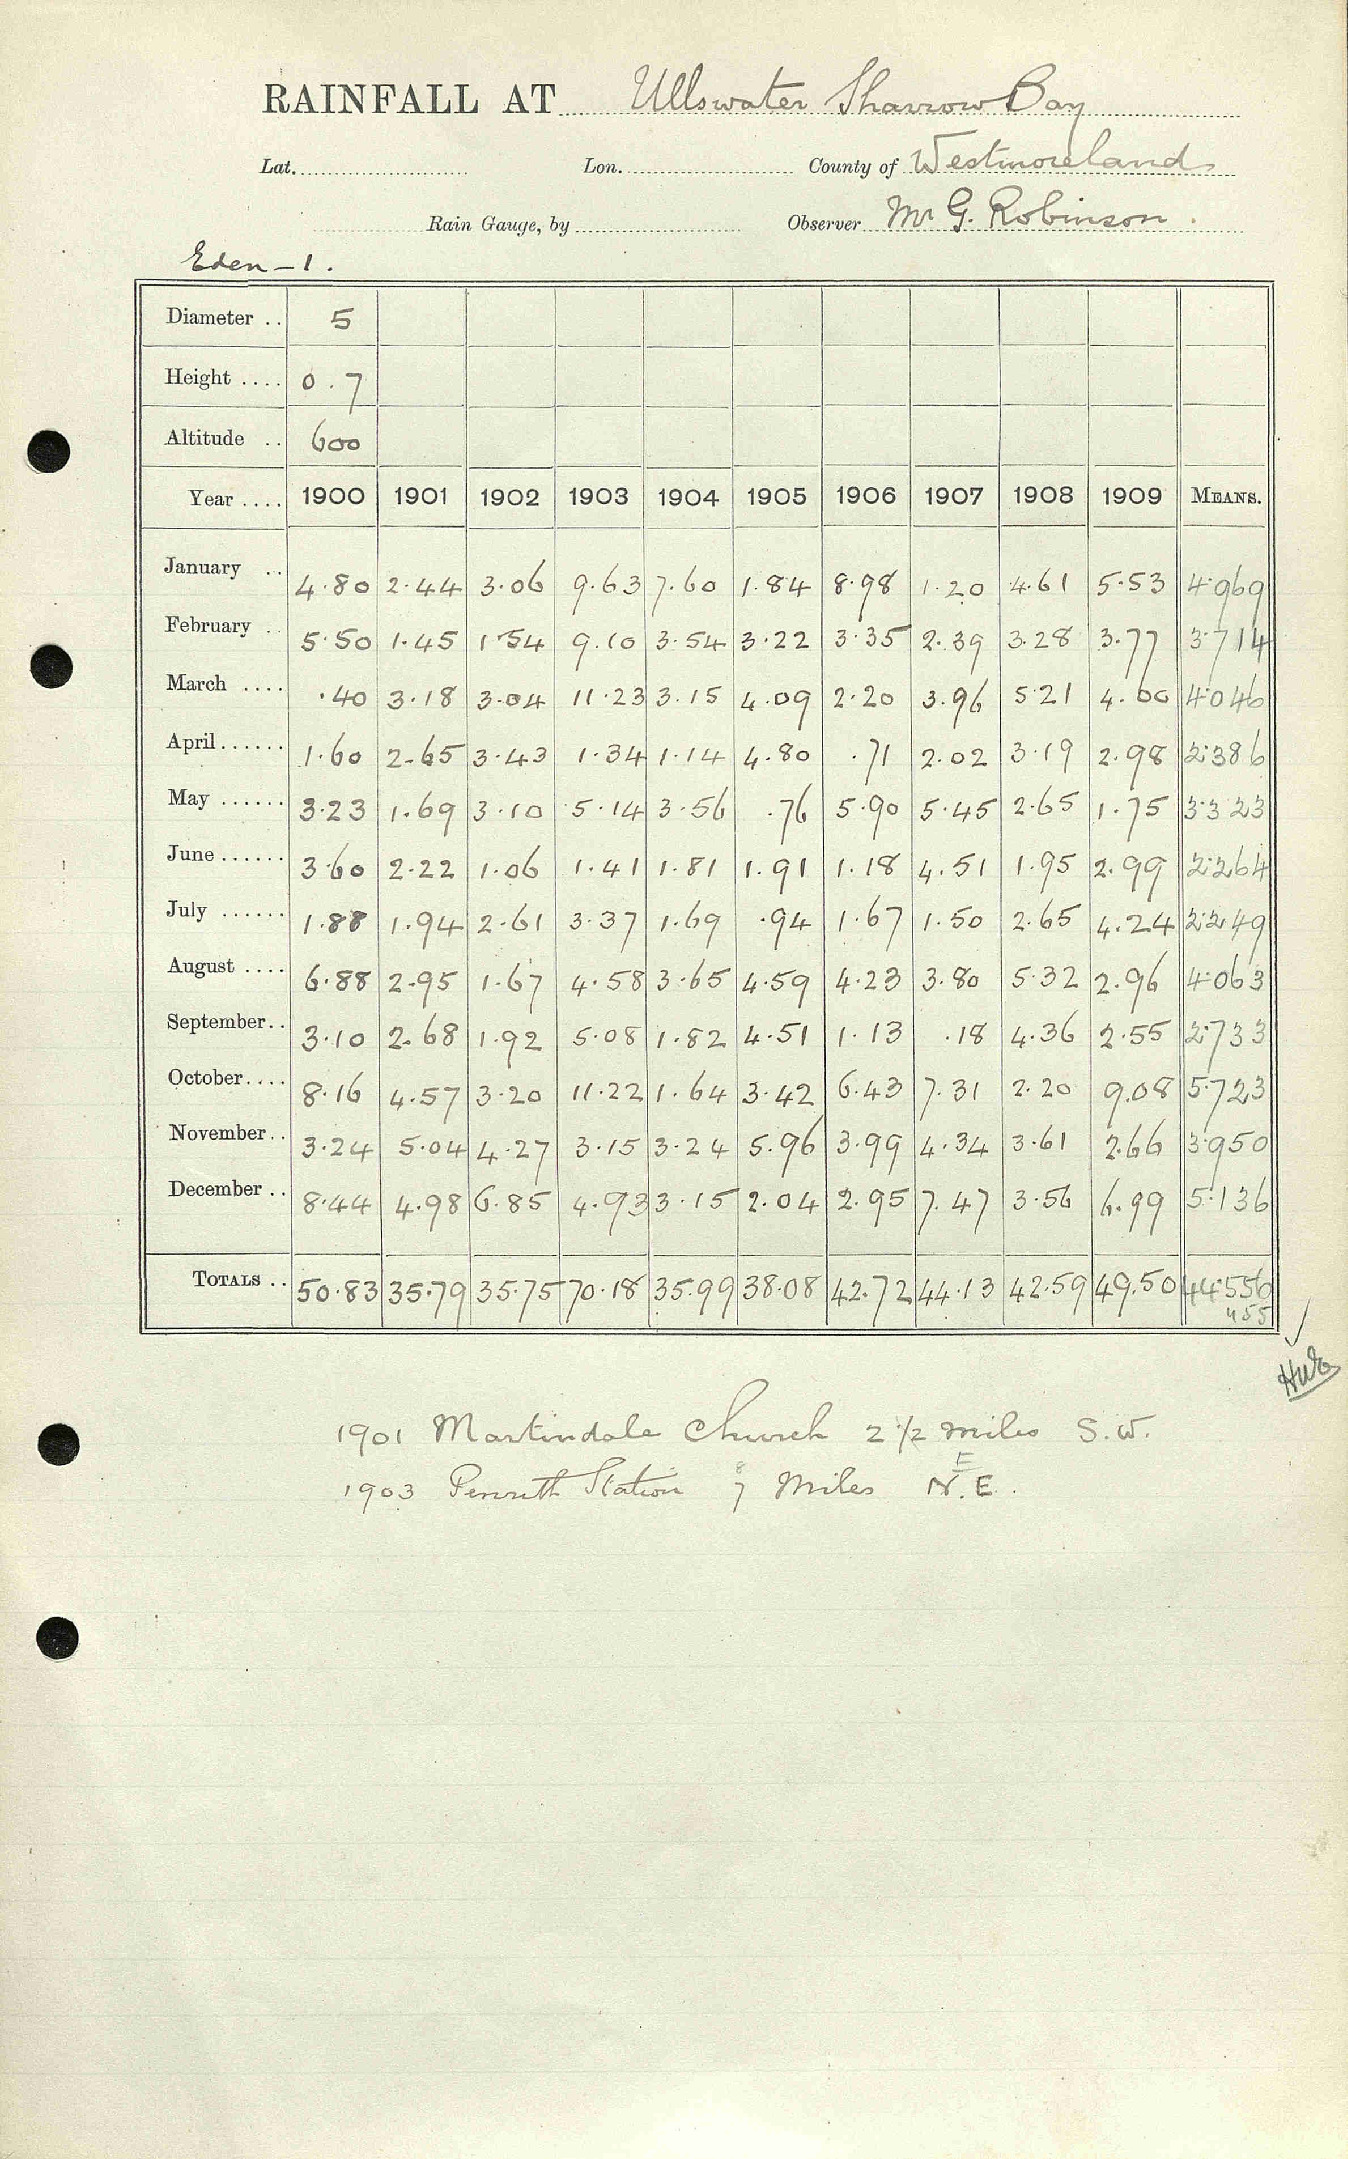 RAINFALL AT Ullswater Sharrow Bay
Lat. Lon. County of Westmoreland
Rain Gauge, by Observer Mr G. Robinson.
Eden - 1.
Diameter .. 5
Height .... 0.7
Altitude .. 600
Year .... 1900 1901 1902 1903 1904 1905 1906 1907 1908 1909 MEANS.
January .. 4.80 2.44 3.06 9.63 7.60 1.84 8.98 1.20 4.61 5.53 4.969
February .. 5.50 1.45 1.54 9.10 3.54 3.22 3.35 2.39 3.28 3.77 3.714
March .... .40 3.18 3.04 11.23 3.15 4.09 2.20 3.96 5.21 4.00 4.046
April ...... 1.60 2.65 3.43 1.34 1.14 4.80 .71 2.02 3.19 2.98 2.386
May ...... 3.23 1.69 3.10 5.14 3.56 .76 5.90 5.45 2.65 1.75 3.323
June ...... 3.60 2.22 1.06 1.41 1.81 1.91 1.18 4.51 1.95 2.99 2.264
July ...... 1.88 1.94 2.61 3.37 1.69 .94 1.67 1.50 2.65 4.24 2.249
August .... 6.88 2.95 1.67 4.58 3.65 4.59 4.23 3.80 5.32 2.96 4.063
September .. 3.10 2.68 1.92 5.08 1.82 4.51 1.13 .18 4.36 2.55 2.733
October .... 8.16 4.57 3.20 11.22 1.64 3.42 6.43 7.31 2.20 9.08 5.723
November .. 3.24 5.04 4.27 3.15 3.24 5.96 3.99 4.34 3.61 2.66 3.950
December .. 8.44 4.98 6.85 4.93 3.15 2.04 2.95 7.47 3.56 6.99 5.136
TOTALS .. 50.83 35.79 35.75 70.18 35.99 38.08 42.72 44.13 42.59 49.50 44.556
55
1901 Martindale Church 2 1/2 miles S.W.
E
1903 Penrith Station 7 Miles N.E.
8